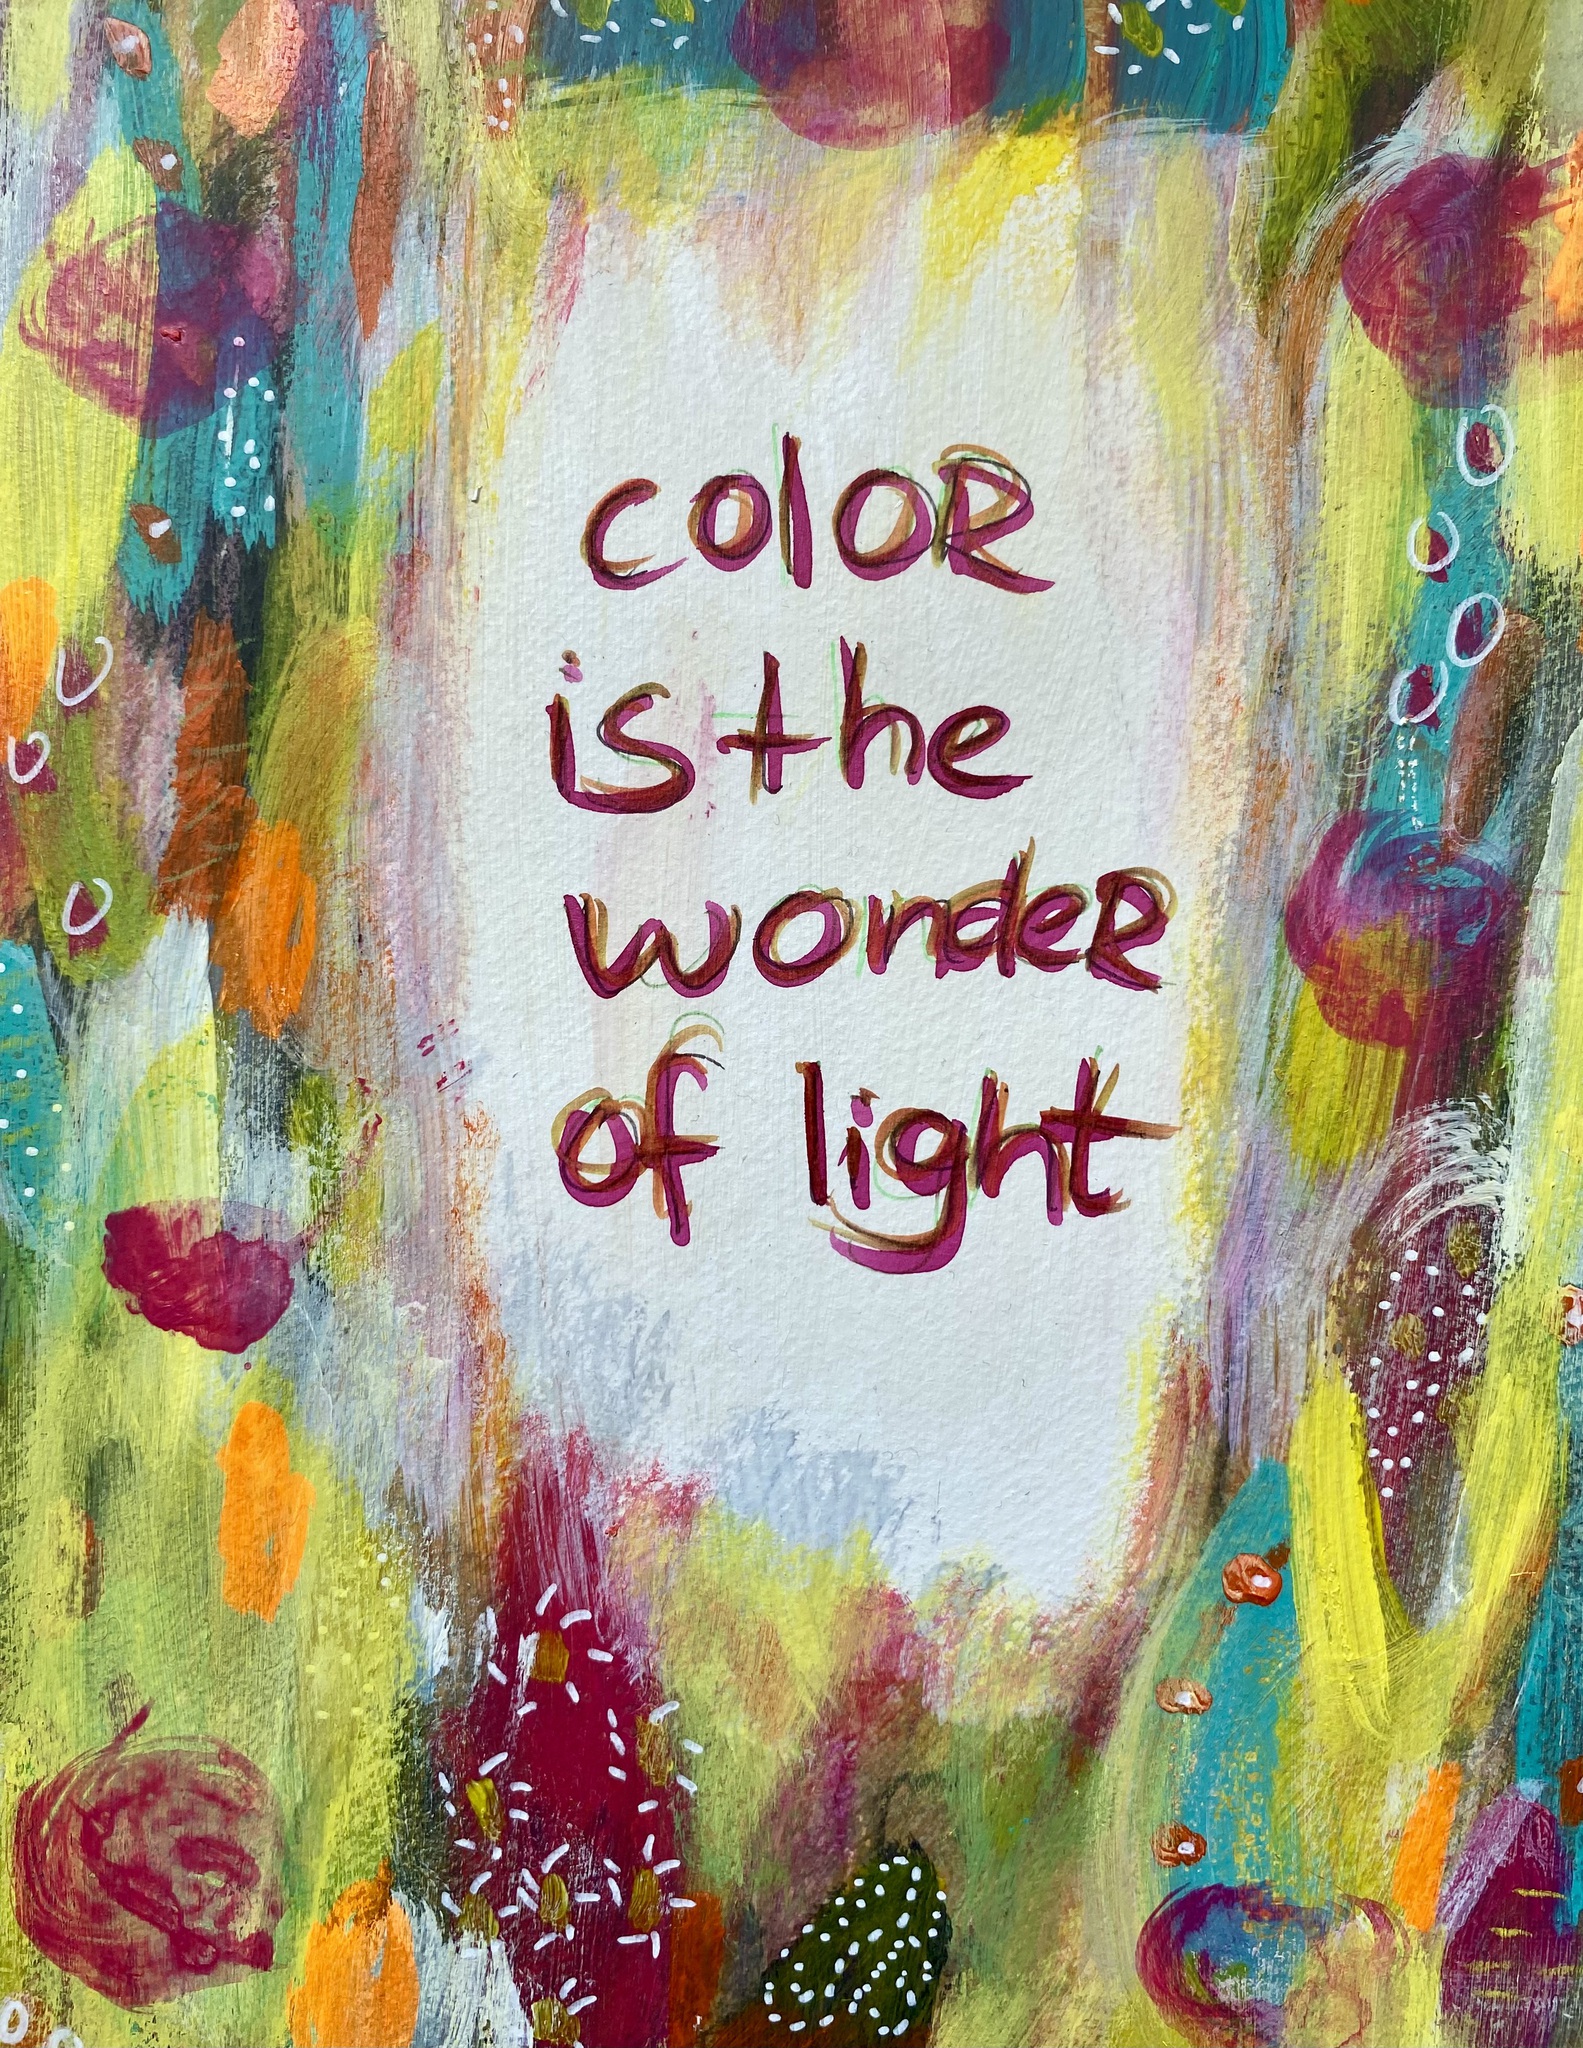 color
is the
wonder
of light